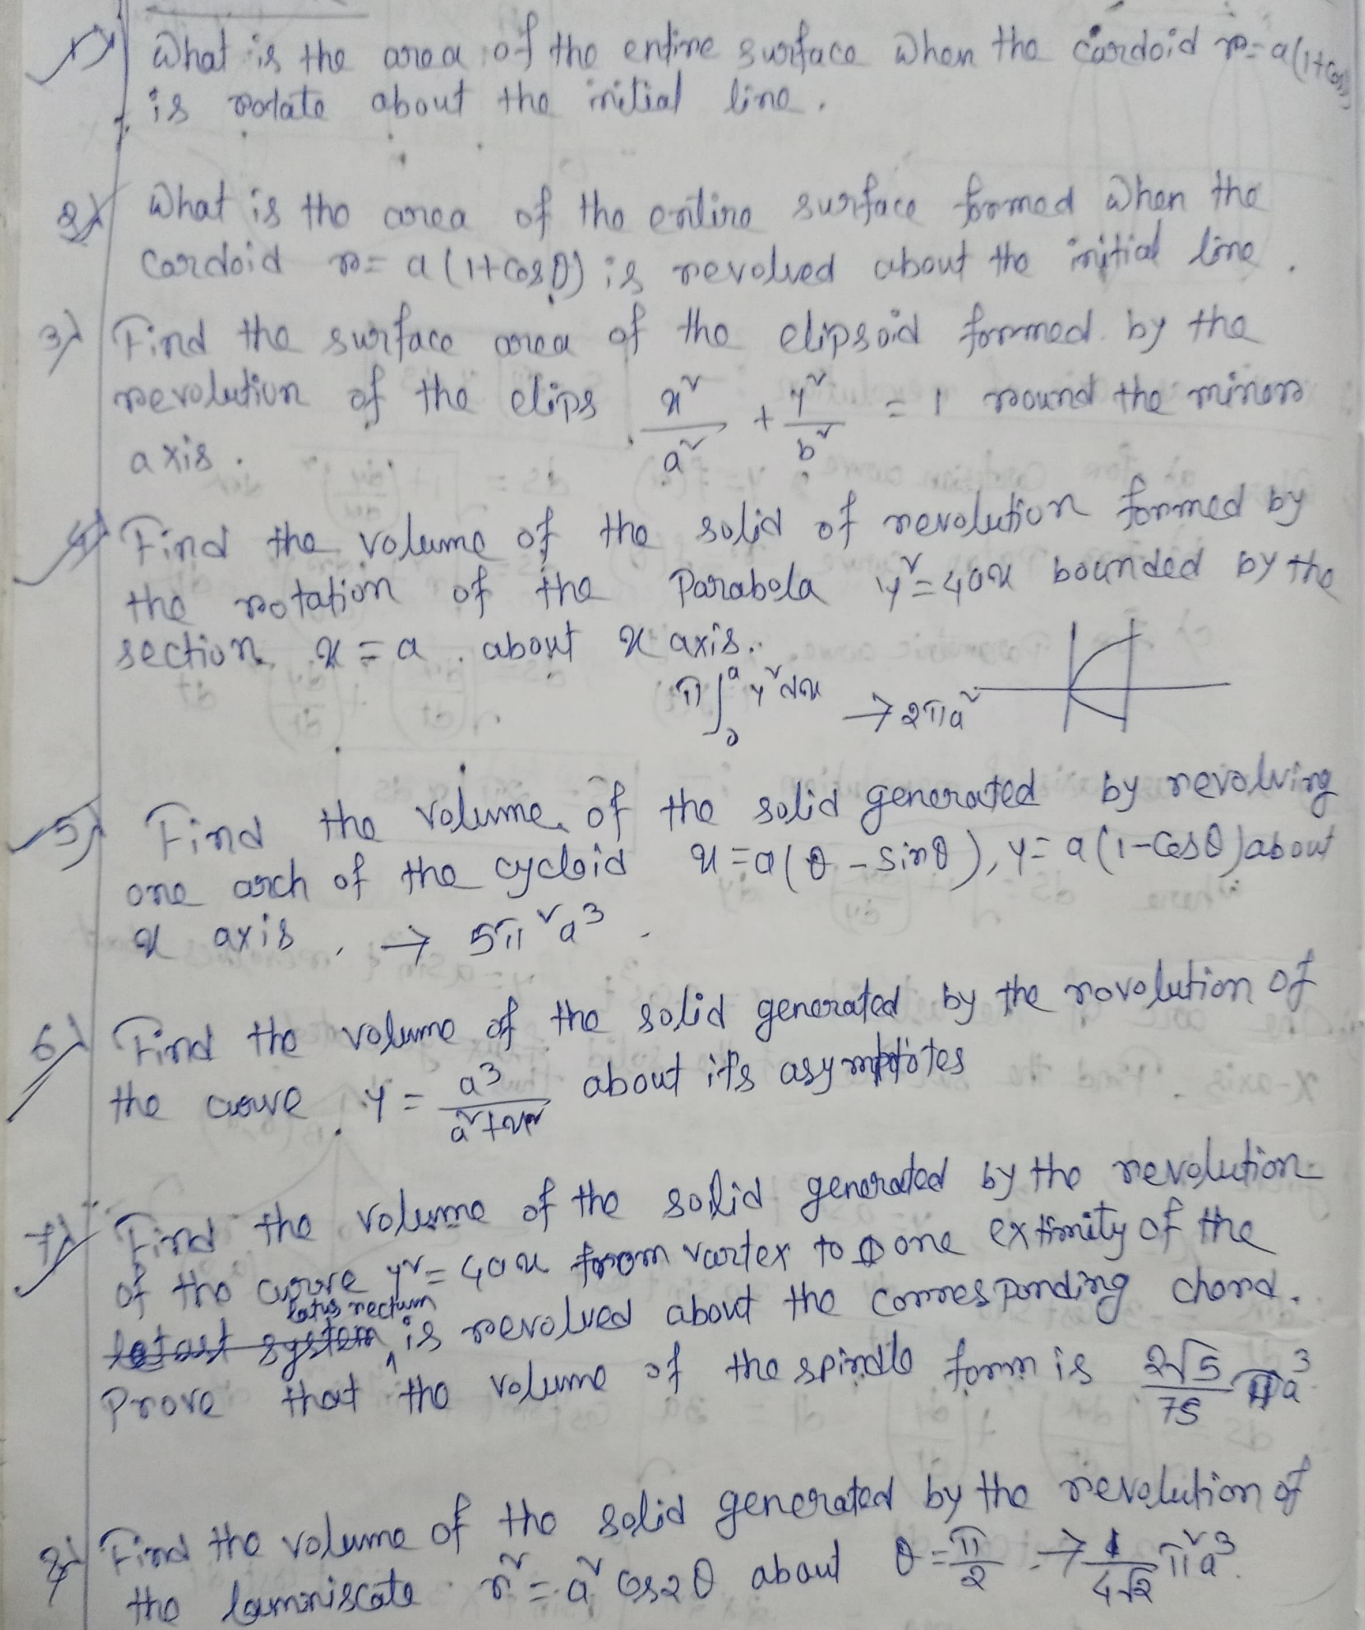 1) What is the area of the entire surface when the cardoid r = a(1+cos
is rotate about the initial line.
2) What is the area of the entire surface formed when the
cardoid r = a(1+cosθ) is revolved about the initial line.
3) Find the surface area of the elipsoid formed by the
revolution of the elips x²/a² + y²/b² = 1 round the minor
axis.
4) Find the volume of the solid of revolution formed by
the rotation of the Parabola y² = 4ax bounded by the
section x = a about x axis.
π∫₀ᵃ y² dx → 2πa²
5) Find the volume of the solid generated by revolving
one arch of the cycloid x = a(θ - sinθ), y = a(1-cosθ) about
x axis. → 5π²a³.
6) Find the volume of the solid generated by the revolution of
the curve y = a³/a²+x² about it's asymptotes
7) Find the volume of the solid generated by the revolution
of the curve y² = 4ax from vartex to one extimity of the
latus rectum is revolved about the corresponding chord.
Prove that the volume of the spindle form is 2√5/75 πa³
8) Find the volume of the solid generated by the revolution of
the lamniscate r² = a² cos2θ about θ = π/2 → 1/4√2 π²a³.